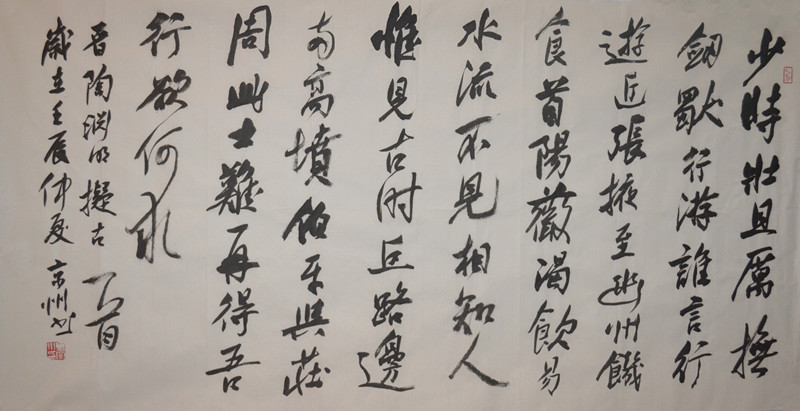 少時壯且厲撫
劒獨行游誰言行
遊近張掖至幽州饑
食首陽薇渴飲易
水流不見相知人
惟見古時丘路邊
兩高墳伯牙與莊
周此士難再得吾
行欲何求
晉陶淵明擬古一首
歲在壬辰仲夏京州書